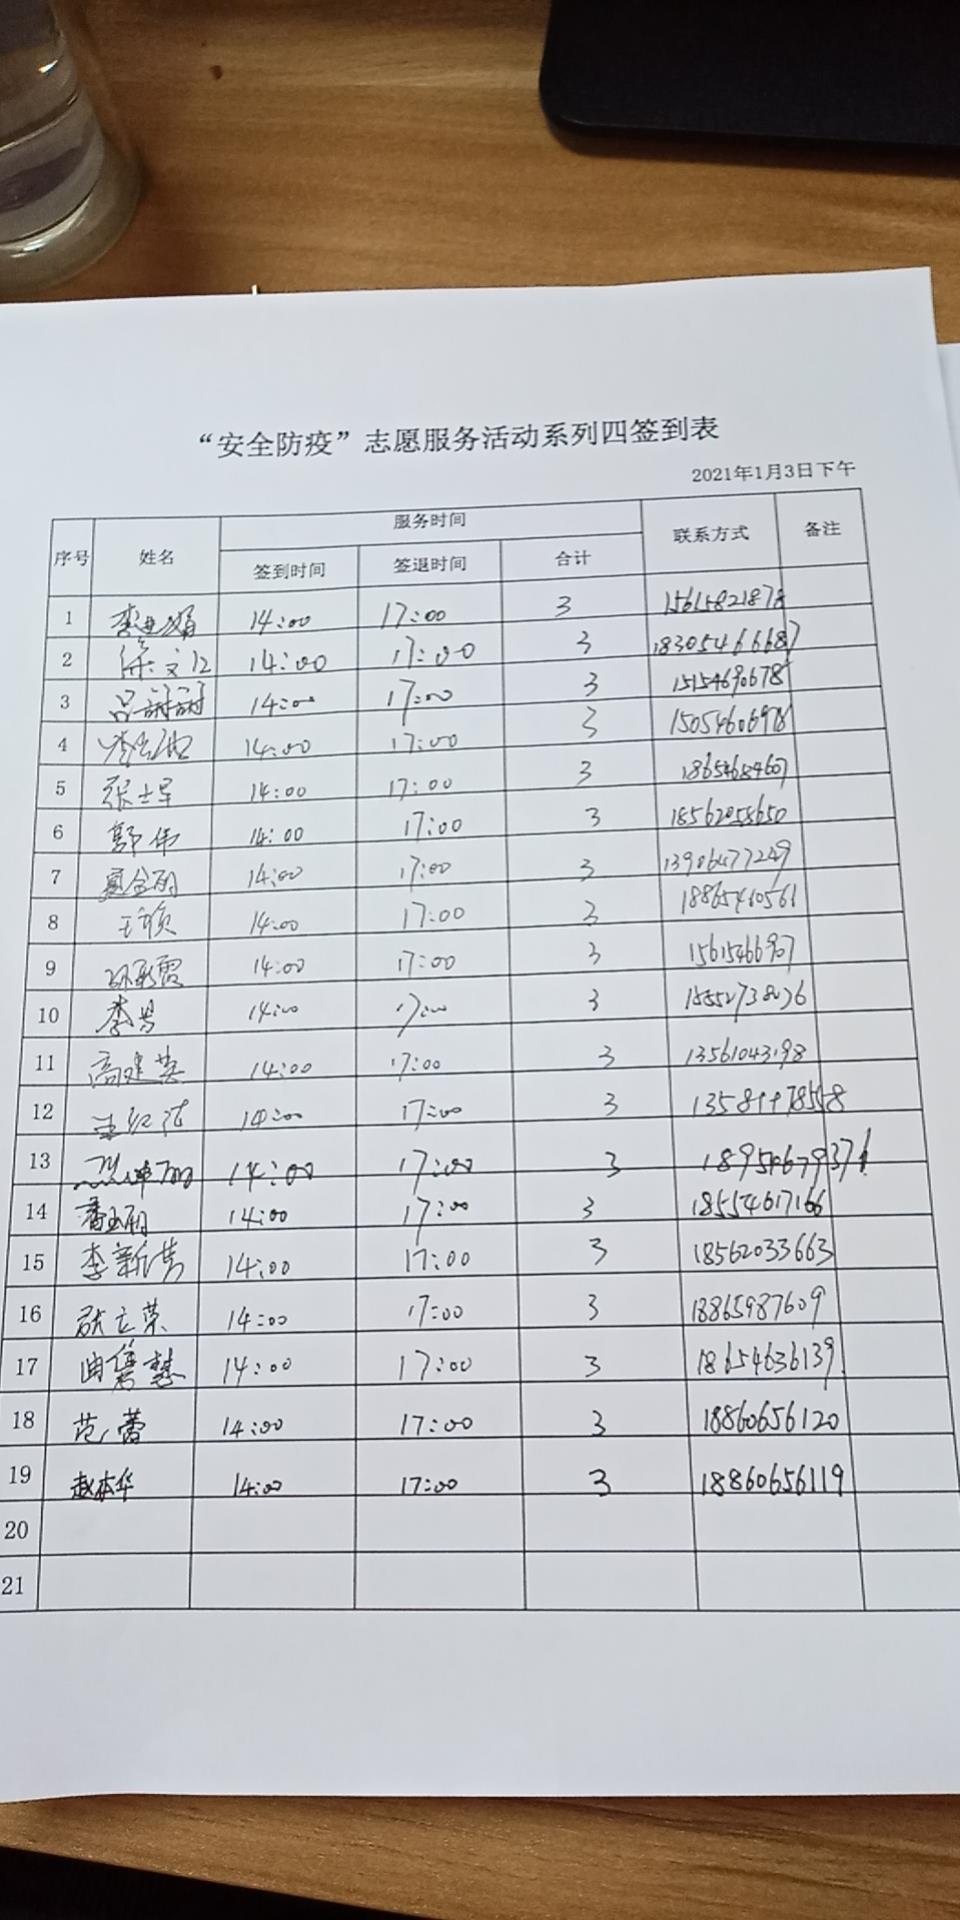 “安全防疫”志愿服务活动系列四签到表
2021年1月3日下午
序号 姓名 服务时间 联系方式 备注
签到时间 签退时间 合计
1 14:00 17:00 3 15615821878
2 14:00 17:00 3 18305466687
3 吕甜甜 14:00 17:00 3 15154690678
4 14:00 17:00 3 15054606978
5 张士军 14:00 17:00 3 18654684607
6 郭伟 14:00 17:00 3 18562058650
7 14:00 17:00 3 13906477249
8 王颖 14:00 17:00 3 18865460561
9 14:00 17:00 3 15615466907
10 14:00 17:00 3
11 高建英 14:00 17:00 3 13561043198
12 14:00 17:00 3
13 14:00 17:00 3
14 潘玉丽 14:00 17:00 3 18554617166
15 14:00 17:00 3 18562033663
16 张立荣 14:00 17:00 3 18865987609
17 14:00 17:00 3 18654636139
18 范蕾 14:00 17:00 3 18860656120
19 赵本华 14:00 17:00 3 18860656119
20
21